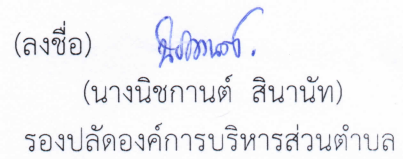 (ลงชื่อ)
(นางนิชกานต์ สินานัท)
รองปลัดองค์การบริหารส่วนตำบล